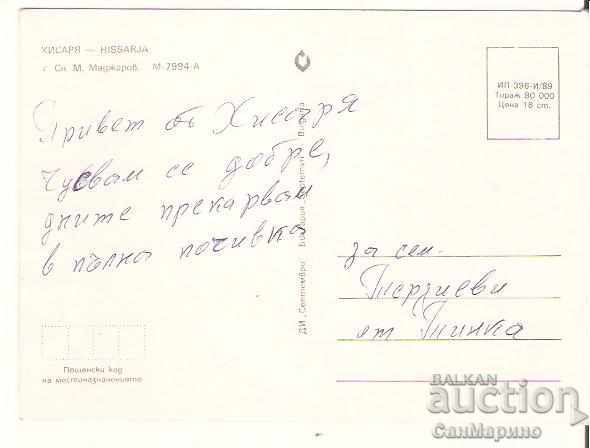 ХИСАРЯ — HISSARJA
г Сн. М. Маджаров. М-7994-А
ИП 396-И/89
Тираж 80 000
Цена 18 ст.
Привет от Хисаря
Чувствам се добре,
дните прекарвам
в пълна почивка
ДИ „Септември"
за сем.
Терзиеви
от Тинка
Пощенски код
на местоназначението
BALKAN
auction
СанМарино